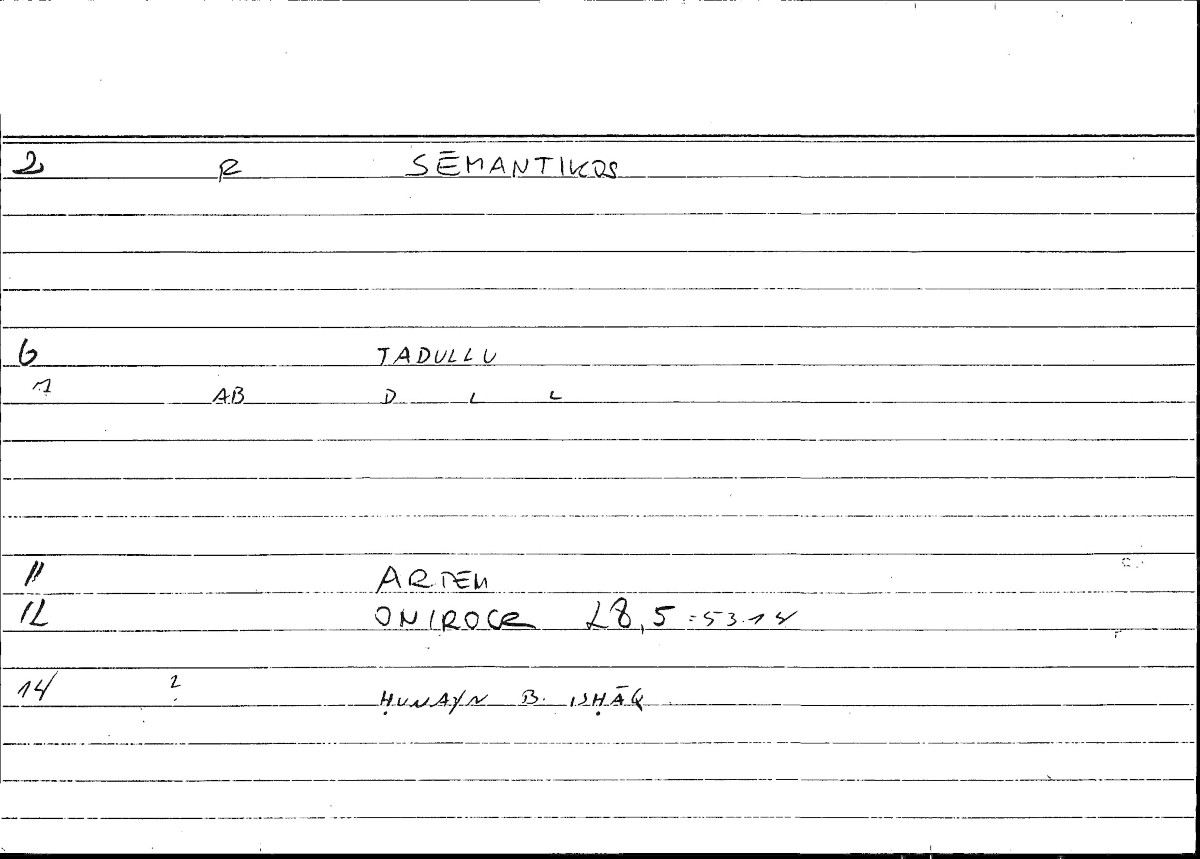 2 R SĒMANTIKOS
6 TADULLU
7 AB D L L
11 ARTEM
12 ONIROCR 28,5 = 53.14
14 2 ḤUNAYN B. ISḤĀQ